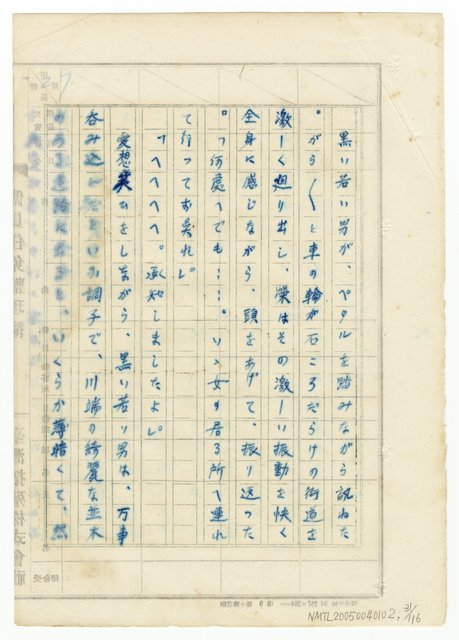 黒い若い男が、ペタルを踏みながら訊ねた
。がら〳〵と車の輪が石ころだらけの街道を
激しく廻り出し、榮はその激しい振動を快く
全身に感じながら、頭をあげて、振り返った
。「何處へでも……。いゝ女の居る所へ連れ
て行ってお呉れ」。
「へへへへ。承知しましたよ」。
愛想笑ひをしながら、黒い若い男は、万事
呑み込んだといふ調子で、川端の綺麗な並木
のある道路に出ると、いくらか薄暗くて、然
NMTL20050040102, 31/116